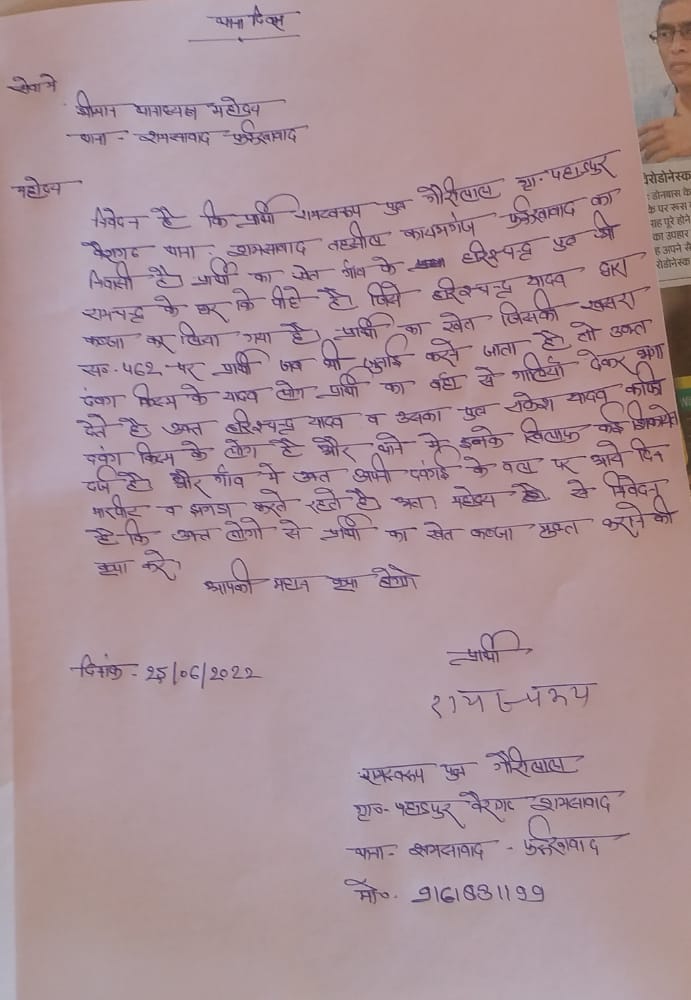 थाना दिवस
सेवा मे
श्रीमान थानाध्यक्ष महोदय
थाना - शमसाबाद - फर्रुखाबाद
महोदय
निवेदन है कि प्रार्थी रामस्वरूप पुत्र गौरीलाल ग्रा. पहाड़पुर
वैरागढ थाना - शमसाबाद तहसील कायमगंज फर्रुखाबाद का
निवासी है। प्रार्थी का खेत गाँव के हरिश्चन्द्र पुत्र श्री
रामचन्द्र के घर के पीछे है। जिसे हरिश्चन्द्र यादव द्वारा
कब्जा कर लिया गया है। प्रार्थी का खेत जिसकी खसरा
सं. 462 पर प्रार्थी जब भी जुताई करने जाता है तो उक्त
दबंग किस्म के यादव लोग प्रार्थी का वहाँ से गालियाँ देकर भगा
देते है। अतः हरिश्चन्द्र यादव व उसका पुत्र राकेश यादव काफी
दबंग किस्म के लोग है और थाने मे इनके खिलाफ कई शिकायते
दर्ज है। और गाँव मे अपनी दबंगई के बल पर आये दिन
मारपीट व झगडा करते रहते है। अतः महोदय से निवेदन
है कि उक्त लोगो से प्रार्थी का खेत कब्जा मुक्त कराने की
कृपा करे।
आपकी महान कृपा होगी
दिनांक - 25/06/2022
प्रार्थी
रामस्वरूप
रामस्वरूप पुत्र गौरीलाल
ग्रा०- पहाड़पुर वैरागढ शमसाबाद
थाना - शमसाबाद - फर्रुखाबाद
मो०. 9161831199
रोडोनेस्क
डोनबास के
के पर रूस
का उपहार
रोडोनेस्क